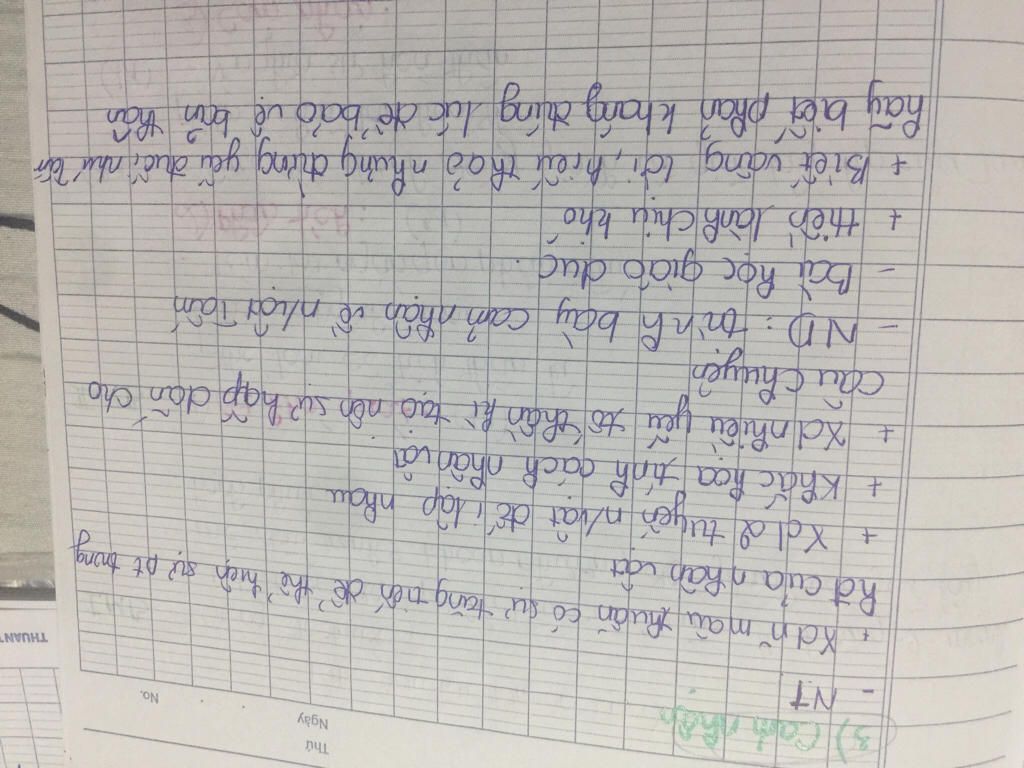 Thứ
Ngày
No.
3) Cảm nhận
- NT
+ Xd n̄ mâu thuẫn có sự tăng tiến để thể hiện sự pt trong
hđ của nhân vật
+ Xd 2 tuyến n/vật đối lập nhau
+ Khắc họa tính cách nhân vật
+ Xd nhiều yếu tố thần kì tạo nên sự hấp dẫn cho
câu chuyện
- ND: trình bày cảm nhận về n/vật Tấm
- Bài học giáo dục:
+ Hiền lành chịu khó
+ Biết vâng lời, hiếu thảo nhưng đừng yếu đuối như Tấm
hãy biết phản kháng đúng lúc để bảo vệ bản thân
THUAN